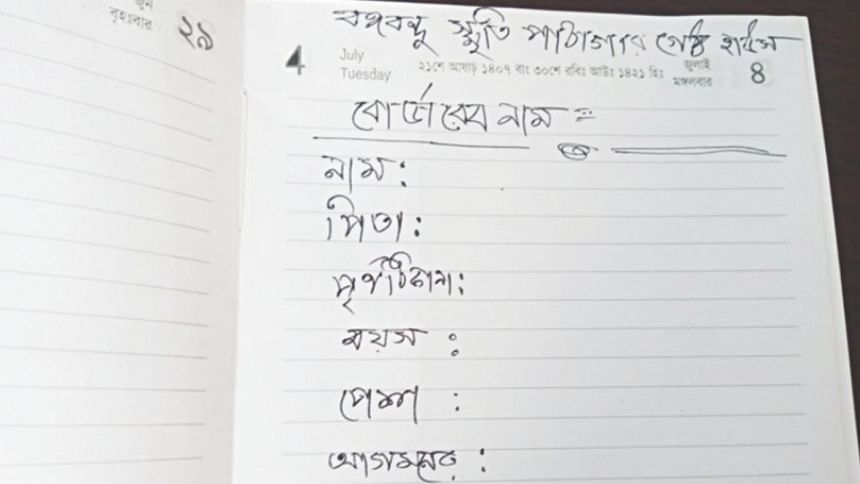 জুন
বৃহঃবার ২৯
বঙ্গবন্ধু স্মৃতি পাঠাগার গেষ্ট হাউস
4 July জুলাই 8
Tuesday ২১শে আষাঢ় ১৪০৭ বাং ৩০শে রবিঃ আউঃ ১৪২১ হিঃ মঙ্গলবার
বোর্ডারের নাম =
নাম :
পিতা :
পূর্ণঠিকানা :
বয়স :
পেশা :
আগমনের :